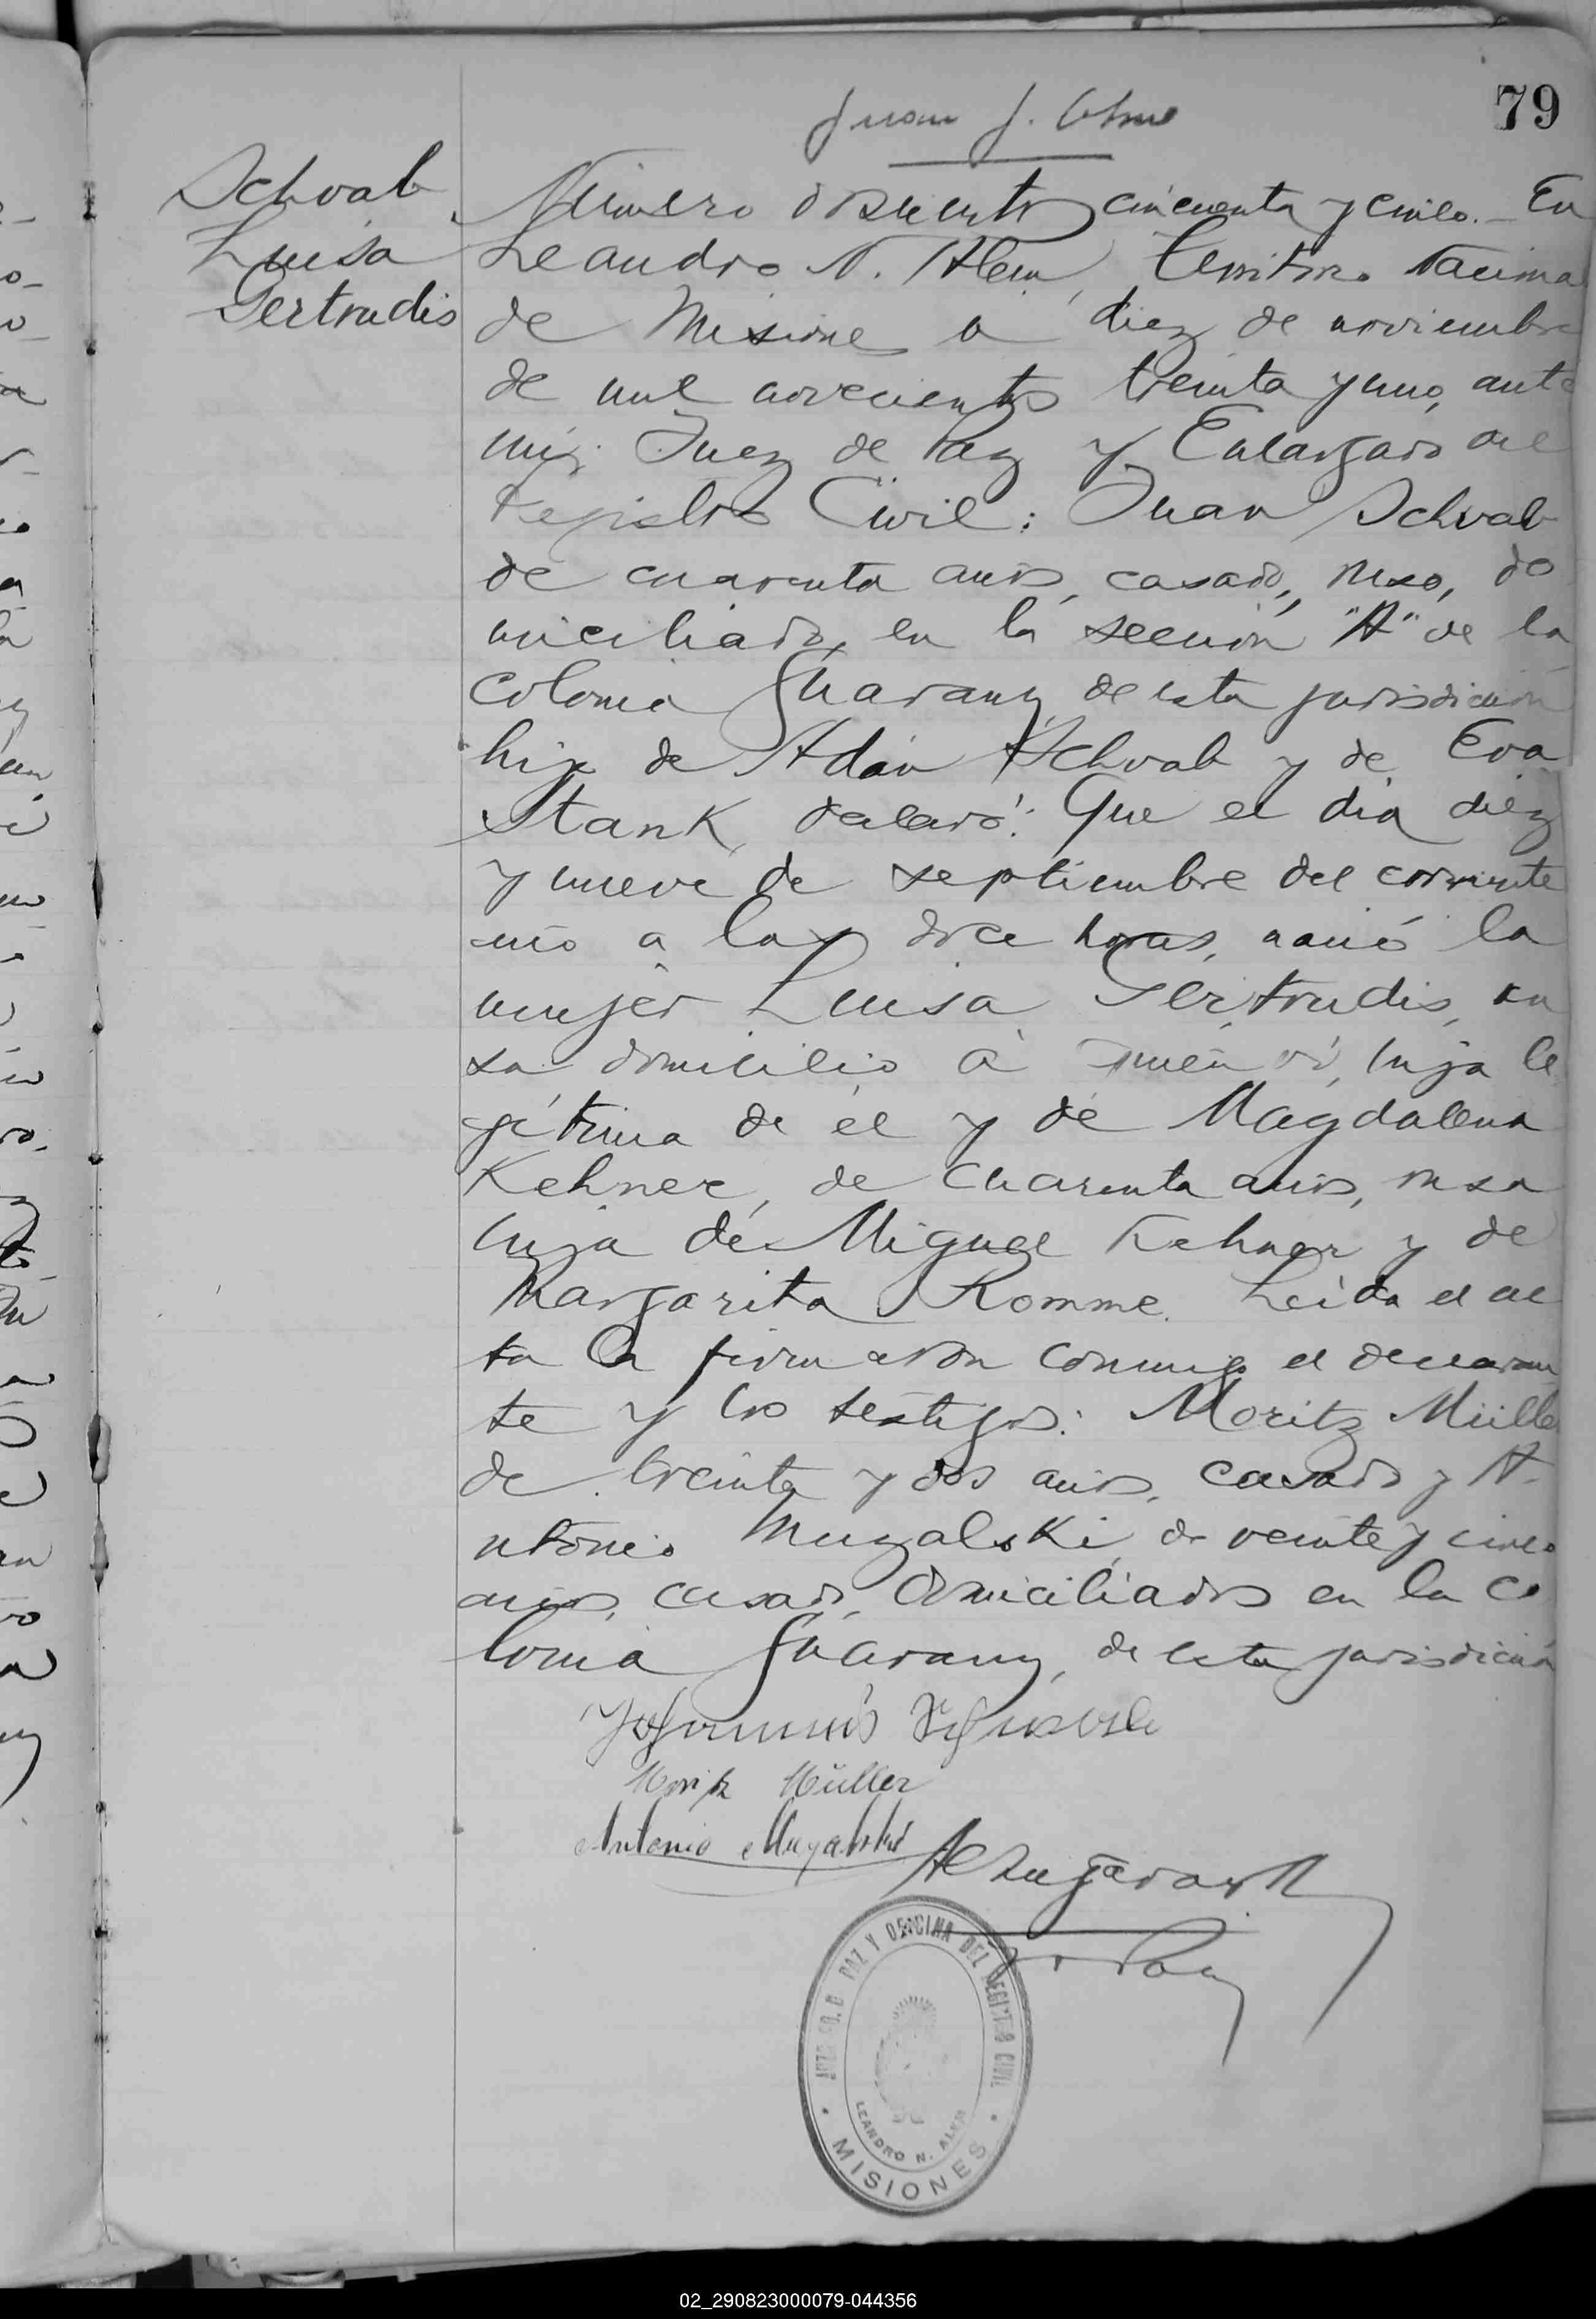 79
Juan J.
Schvab
Luisa
Gertrudis
Número doscientos cincuenta y cinco. En
Leandro N. Alem, Territorio Naciona
de Misiones a diez de noviembre
de mil novecientos treinta y uno, ante
mi, Juez de Paz y Encargado del
Registro Civil: Juan Schvab
de cuarenta años, casado, ruso, do
miciliado, en la sección "A" de la
Colonia Guarany de esta jurisdicción
hijo de Adán Schvab y de Eva
Stank, declaró: Que el dia diez
y nueve de septiembre del corriente
año a las doce horas, nació la
mujer Luisa Gertrudis, en
su domicilio á quien vi, hija le
gítima de él y de Magdalena
Kehner, de cuarenta años, rusa
hija de Miguel Kehner y de
Margarita Romme. Leída el ac
ta la firmaron conmigo el declaran
te y los testigos: Moritz Mülle
de treinta y dos años, casado y A-
ntonio Muzalski de veinte y cinco
años, casado, domiciliados en la Co
lonia Guarany, de esta jurisdicción
Johannes Schwab
Moritz Müller
Antonio
J. de Paz
JUZGADO D PAZ Y OFICINA DEL REGISTRO CIVIL
LEANDRO N. ALEM
MISIONES
02_290823000079-044356